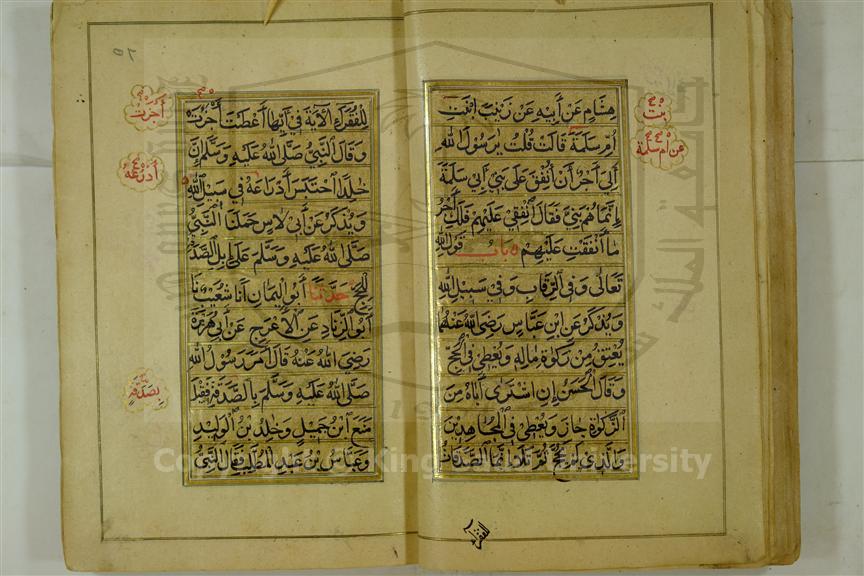 هشام عن أبيه عن زينب ابنت
أم سلمة قالت قلت يرسول الله
إلي أجر أن أنفق على بني أبي سلمة
إنما هم بني فقال أنفقي عليهم فلك أجر
ما أنفقت عليهم باب قول الله
تعالى وفي الرقاب وفي سبيل الله
ويذكر عن ابن عباس رضي الله عنهما
يعتق من زكوة ماله ويعطي في الحج
وقال الحسن إن اشترى أباه من
الزكوة جاز ويعطي في المجاهدين
والذي لم يحج ثم تلا إنما الصدقات
للفقراء
بنت
عن أم سلمة
للفقراء الآية في أيها أعطيت أجزت
وقال النبي صلى الله عليه وسلم إن
خلدا احتبس أدراعه في سبيل الله
ويذكر عن أبي لاس حملنا النبي
صلى الله عليه وسلم على إبل الصدقة
للحج حدثنا أبو اليمان أنا شعيب نا
أبو الزناد عن الأعرج عن أبي هريرة
رضي الله عنه قال أمر رسول الله
صلى الله عليه وسلم بالصدقة فقيل
منع ابن جميل وخلد بن الوليد
وعباس بن عبد المطلب فقال النبي
أجزت
أدرعه
بصدقة
Copyright © King Saud University